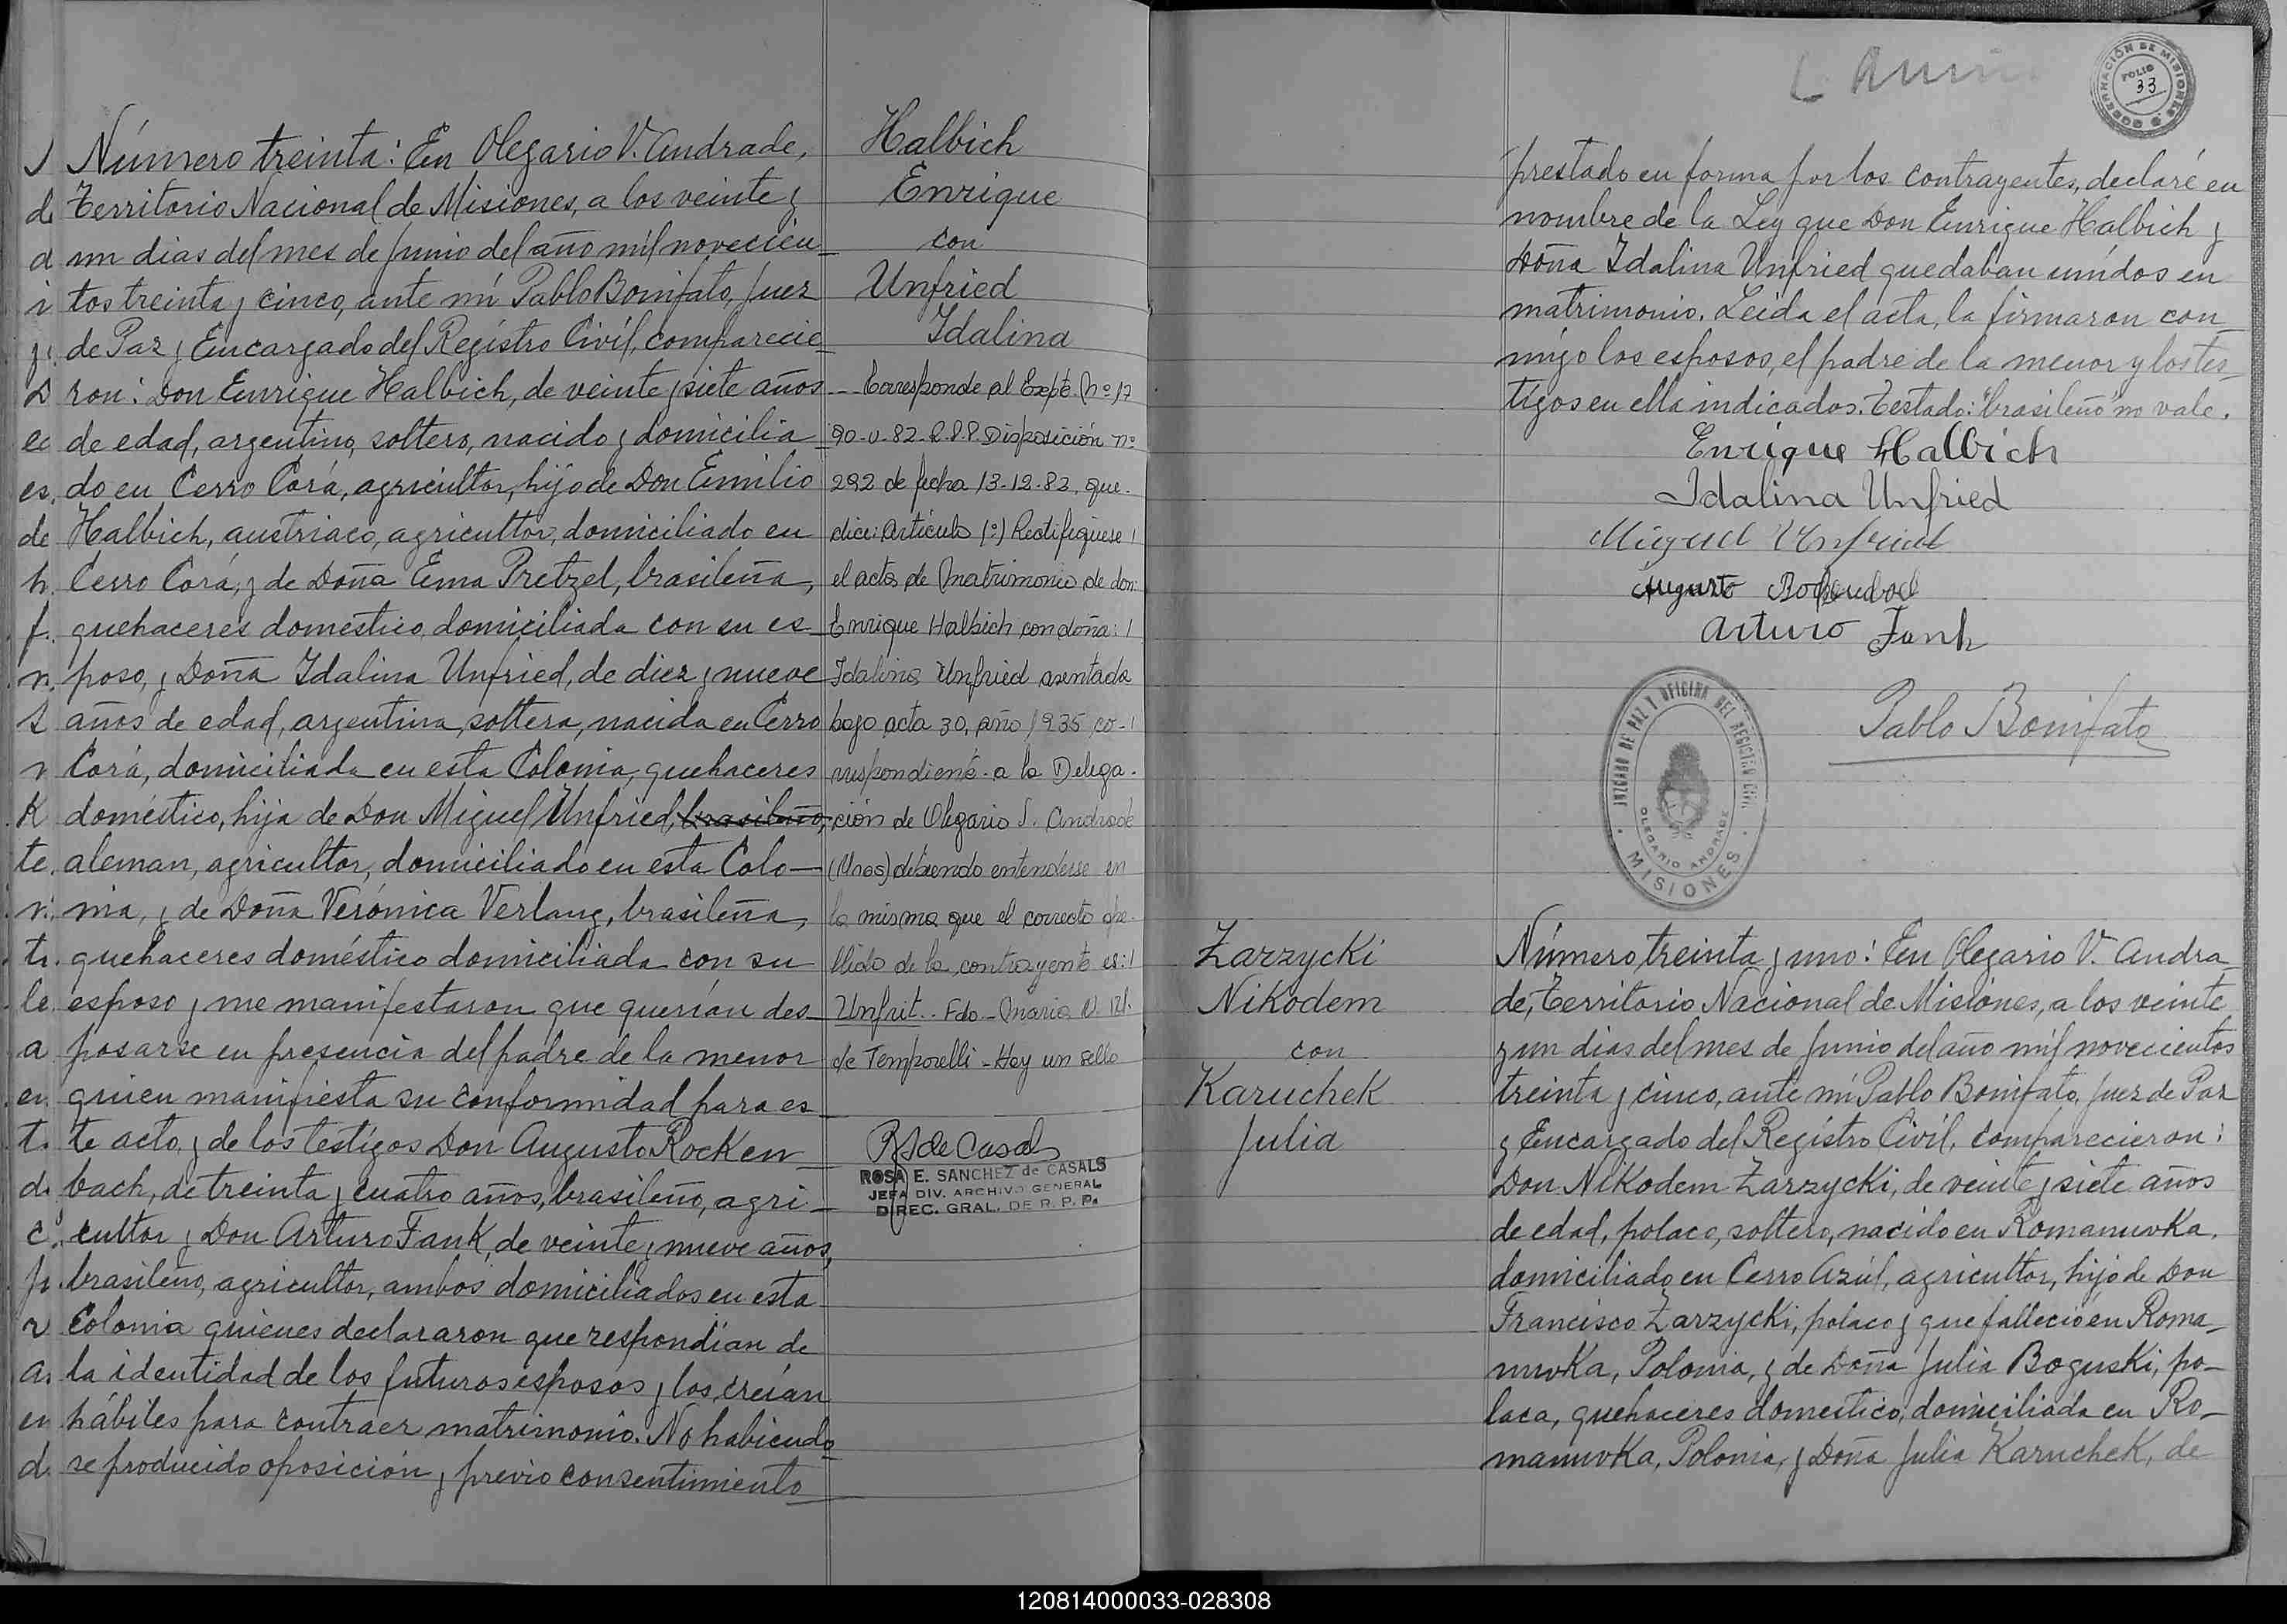 Número treinta: En Olegario V. Andrade,
Territorio Nacional de Misiones, a los veinte y
un dias del mes de Junio del año mil novecien
tos treinta y cinco, ante mí Pablo Bonifato, Juez
de Paz y Encargado del Registro Civil, comparecie
ron: Don Enrique Halbich, de veinte y siete años
de edad, argentino, soltero, nacido y domicilia
do en Cerro Corá, agricultor, hijo de Don Emilio
Halbich, austriaco, agricultor, domiciliado en
Cerro Corá, y de Doña Ema Pretzel, brasileña,
quehaceres doméstico, domiciliada con su es
poso, y Doña Idalina Unfried, de diez y nueve
años de edad, argentina, soltera, nacida en Cerro
Corá, domiciliada en esta Colonia, quehaceres
doméstico, hija de Don Miguel Unfried, brasileño,
aleman, agricultor, domiciliado en esta Colo-
nia, y de Doña Verónica Verlang, brasileña,
quehaceres doméstico domiciliada con su
esposo y me manifestaron que querían des
posarse en presencia del padre de la menor
quien manifiesta su conformidad para es
te acto, y de los testigos Don Augusto Rocken
bach, de treinta y cuatro años, brasileño, agri-
cultor y Don Arturo Fank, de veinte y nueve años,
brasileño, agricultor, ambos domiciliados en esta
Colonia quienes declararon que respondían de
la identidad de los futuros esposos y los creían
hábiles para contraer matrimonio. No habiendo
se producido oposición y previo consentimiento
Halbich
Enrique
con
Unfried
Idalina
-- Corresponde al Expte. Nº 17
90-V-82-R.P.P. Disposición nº
292 de fecha 13-12-82, que
dice: Artículo 1º) Rectifíquese
el acta de Matrimonio de don:
Enrique Halbich con doña:
Idalina Unfried asentada
bajo acta 30, año 1935 co-
rrespondiente a la Delega-
ción de Olegario V. Andrade
(Mnes) debiendo entenderse en
la misma que el correcto ape-
llido de la contrayente es:
Unfrit.. Fdo - Maria
de Temporelli - Hay un sello
R S de Casals
ROSA E. SANCHEZ de CASALS
JEFA DIV. ARCHIVO GENERAL
DIREC. GRAL. DE R. P. P.
GOBERNACIÓN DE MISIONES
FOLIO
33
prestado en forma por los contrayentes, declaré en
nombre de la Ley que Don Enrique Halbich y
Doña Idalina Unfried quedaban unidos en
matrimonio. Leida el acta, la firmaron con-
migo los esposos, el padre de la menor y los tes-
tigos en ella indicados. Testado: "brasileño" no vale.
Enrique Halbich
Idalina Unfried
Miguel Unfried
Augusto
Arturo Fank
Pablo Bonifato
JUZGADO DE PAZ Y OFICINA DEL REGISTRO CIVIL
OLEGARIO ANDRADE
MISIONES
Zarzycki
Nikodem
con
Karuchek
Julia
Número treinta y uno: En Olegario V. Andra
de, Territorio Nacional de Misiones, a los veinte
y un dias del mes de Junio del año mil novecientos
treinta y cinco, ante mí Pablo Bonifato, Juez de Paz
y Encargado del Registro Civil, comparecieron:
Don Nikodem Zarzycki, de veinte y siete años
de edad, polaco, soltero, nacido en Romanuvka,
domiciliado en Cerro Azúl, agricultor, hijo de Don
Francisco Zarzycki, polaco y que falleció en Roma-
nuvka, Polonia, y de Doña Julia Boguski, po-
laca, quehaceres doméstico, domiciliada en Ro-
manuvka, Polonia, y Doña Julia Karuchek, de
120814000033-028308